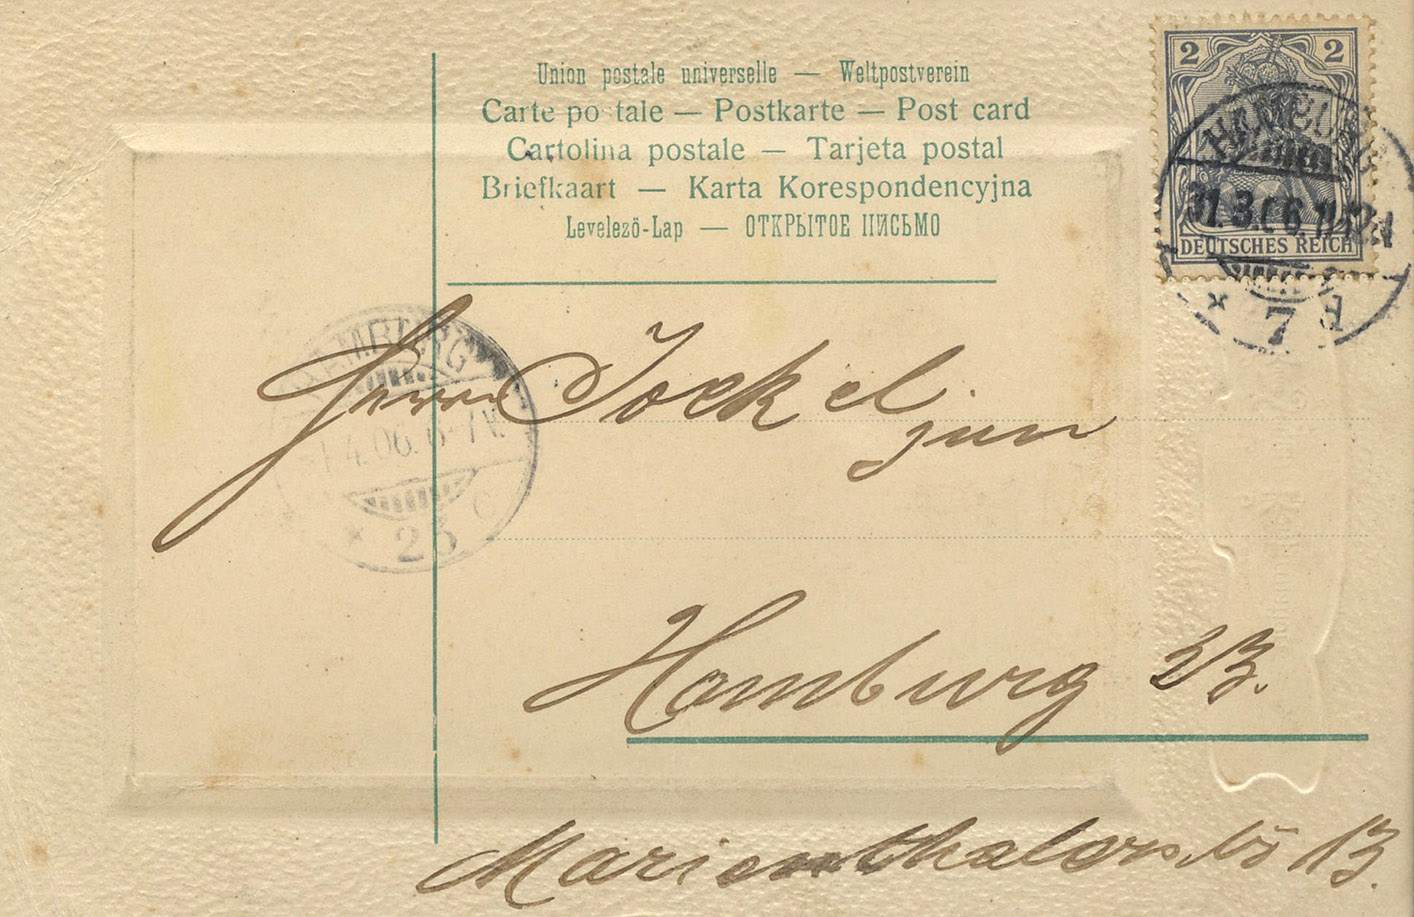 Union postale universelle — Weltpostverein
Carte postale — Postkarte — Post card
Cartolina postale — Tarjeta postal
Briefkaart — Karta Korespondencyjna
Levelező-Lap — ОТКРЫТОЕ ПИСЬМО
2 2
DEUTSCHES REICH
31.3.06.11-12N
* 7 d
HAMBURG
1.4.06. 6-7V.
* 23 c
Herrn Jockel
jun
Hamburg 23.
Marienthalerstr 13.